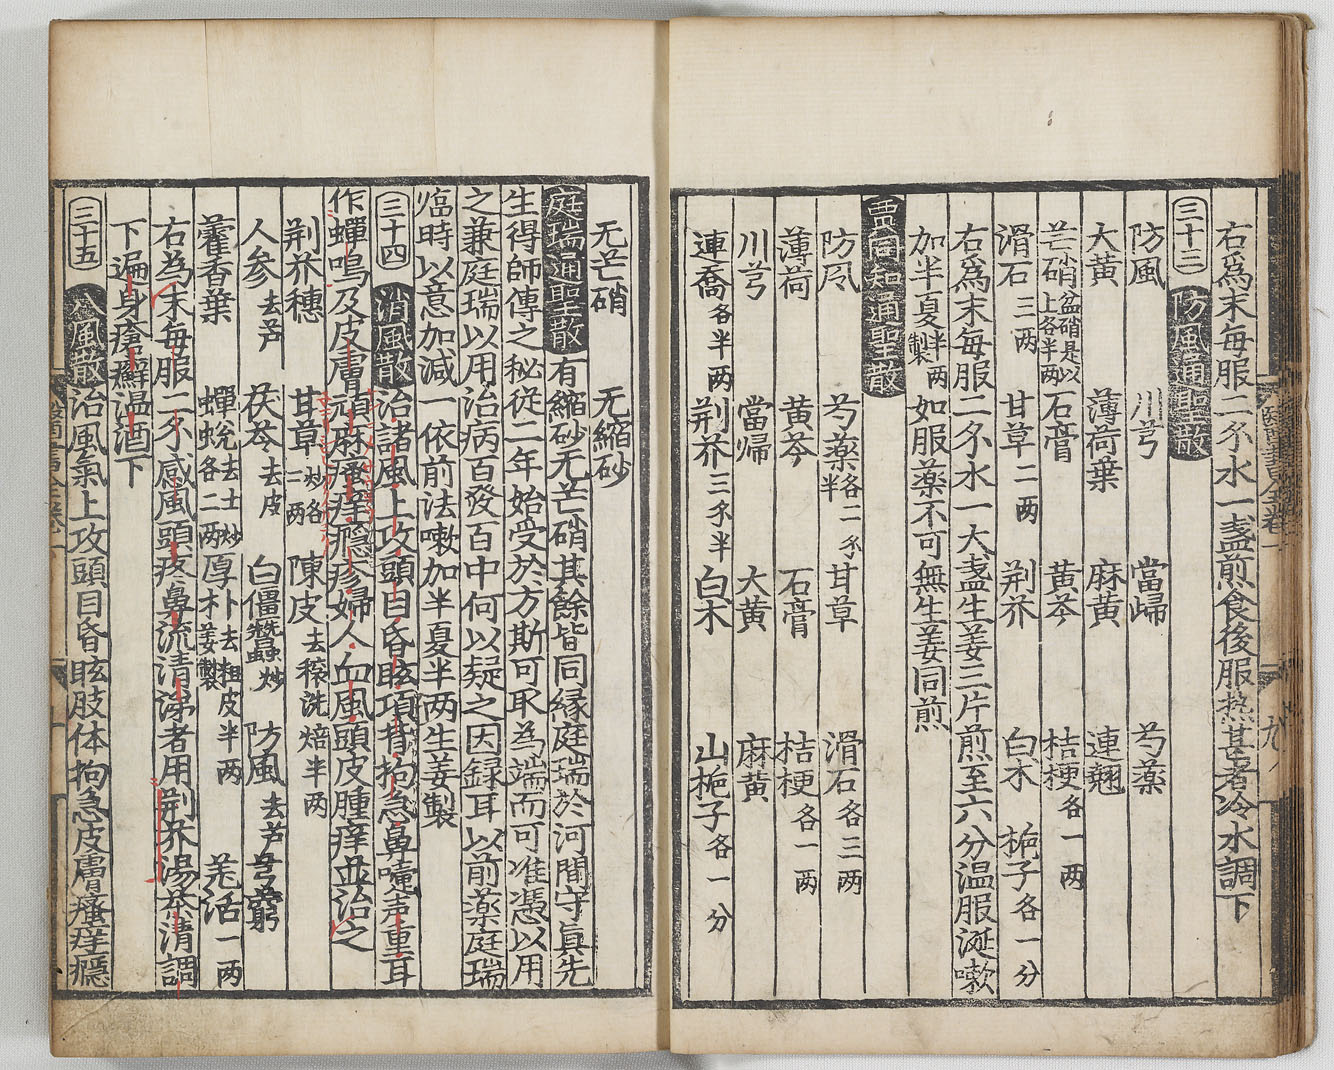 右爲末每服二錢水一盞煎食後服熱甚者冷水調下
三十三 防風通聖散
防風 川芎 當歸 芍藥
大黃 薄荷葉 麻黃 連翹
芒硝 盆硝是以上各半两 石膏 黃芩 桔梗各一两
滑石三两 甘草二两 荆芥 白朮 梔子各一分
右爲末每服二钱水一大盏生姜三片煎至六分温服涎嗽
加半夏半两製 如服薬不可無生姜同煎
賈同知通聖散
防風 芍薬各二钱半 甘草 滑石各三两
薄荷 黃芩 石膏 桔梗各一两
川芎 當歸 大黃 麻黃
連喬各半两 荆芥三钱半 白朮 山梔子各一分
无芒硝 无縮砂
庭瑞通聖散 有縮砂无芒硝其餘皆同縁庭瑞於河間守真先
生得師傳之秘從二年始受於方斯可取為端而可准憑以用
之兼庭瑞以用治病百發百中何以疑之因録耳以前薬庭瑞
臨時以意加减一依前法嗽加半夏半两生姜製
三十四 消風散 治諸風上攻頭目昏眩項背拘急鼻嚏声重耳
作蟬鳴及皮膚頑麻瘙痒癮疹婦人血風頭皮腫痒並治之
荆芥穗 甘草炒各二两 陳皮去穰洗焙半两
人参去芦 茯苓去皮 白僵蠶炒 防風去芦 芎藭
藿香葉 蟬蛻去土炒各二两 厚朴去粗皮半两姜製 羌活一两
右為末每服二钱感風頭疼鼻流清涕者用荆芥湯茶清調
下遍身瘡癬温酒下
三十五 八風散 治風氣上攻頭目昏眩肢体拘急皮膚瘙痒癮